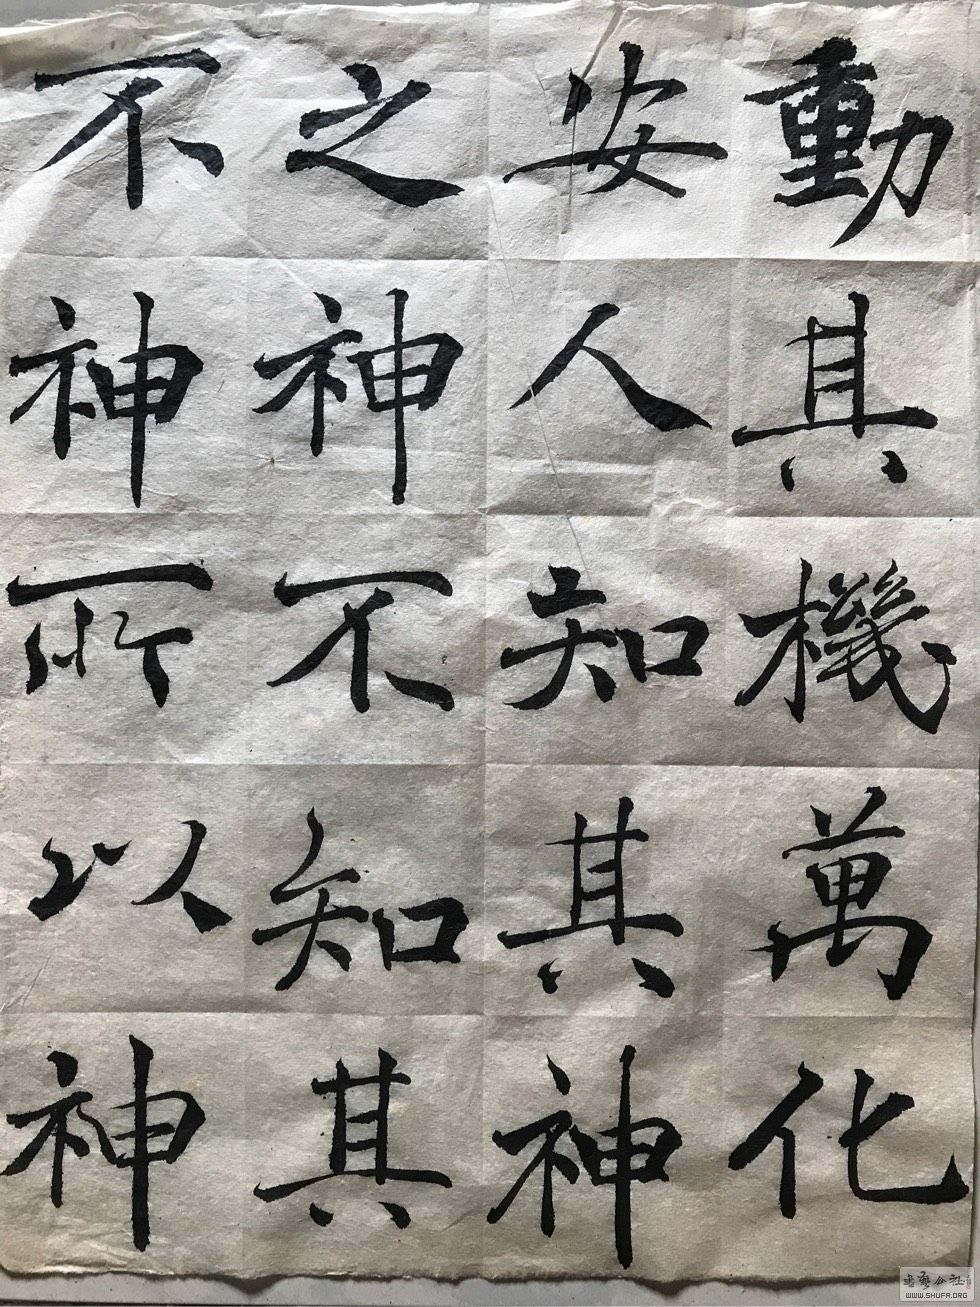 動其機萬化
安人知其神
之神不知其
不神所以神
WWW.SHUFA.ORG